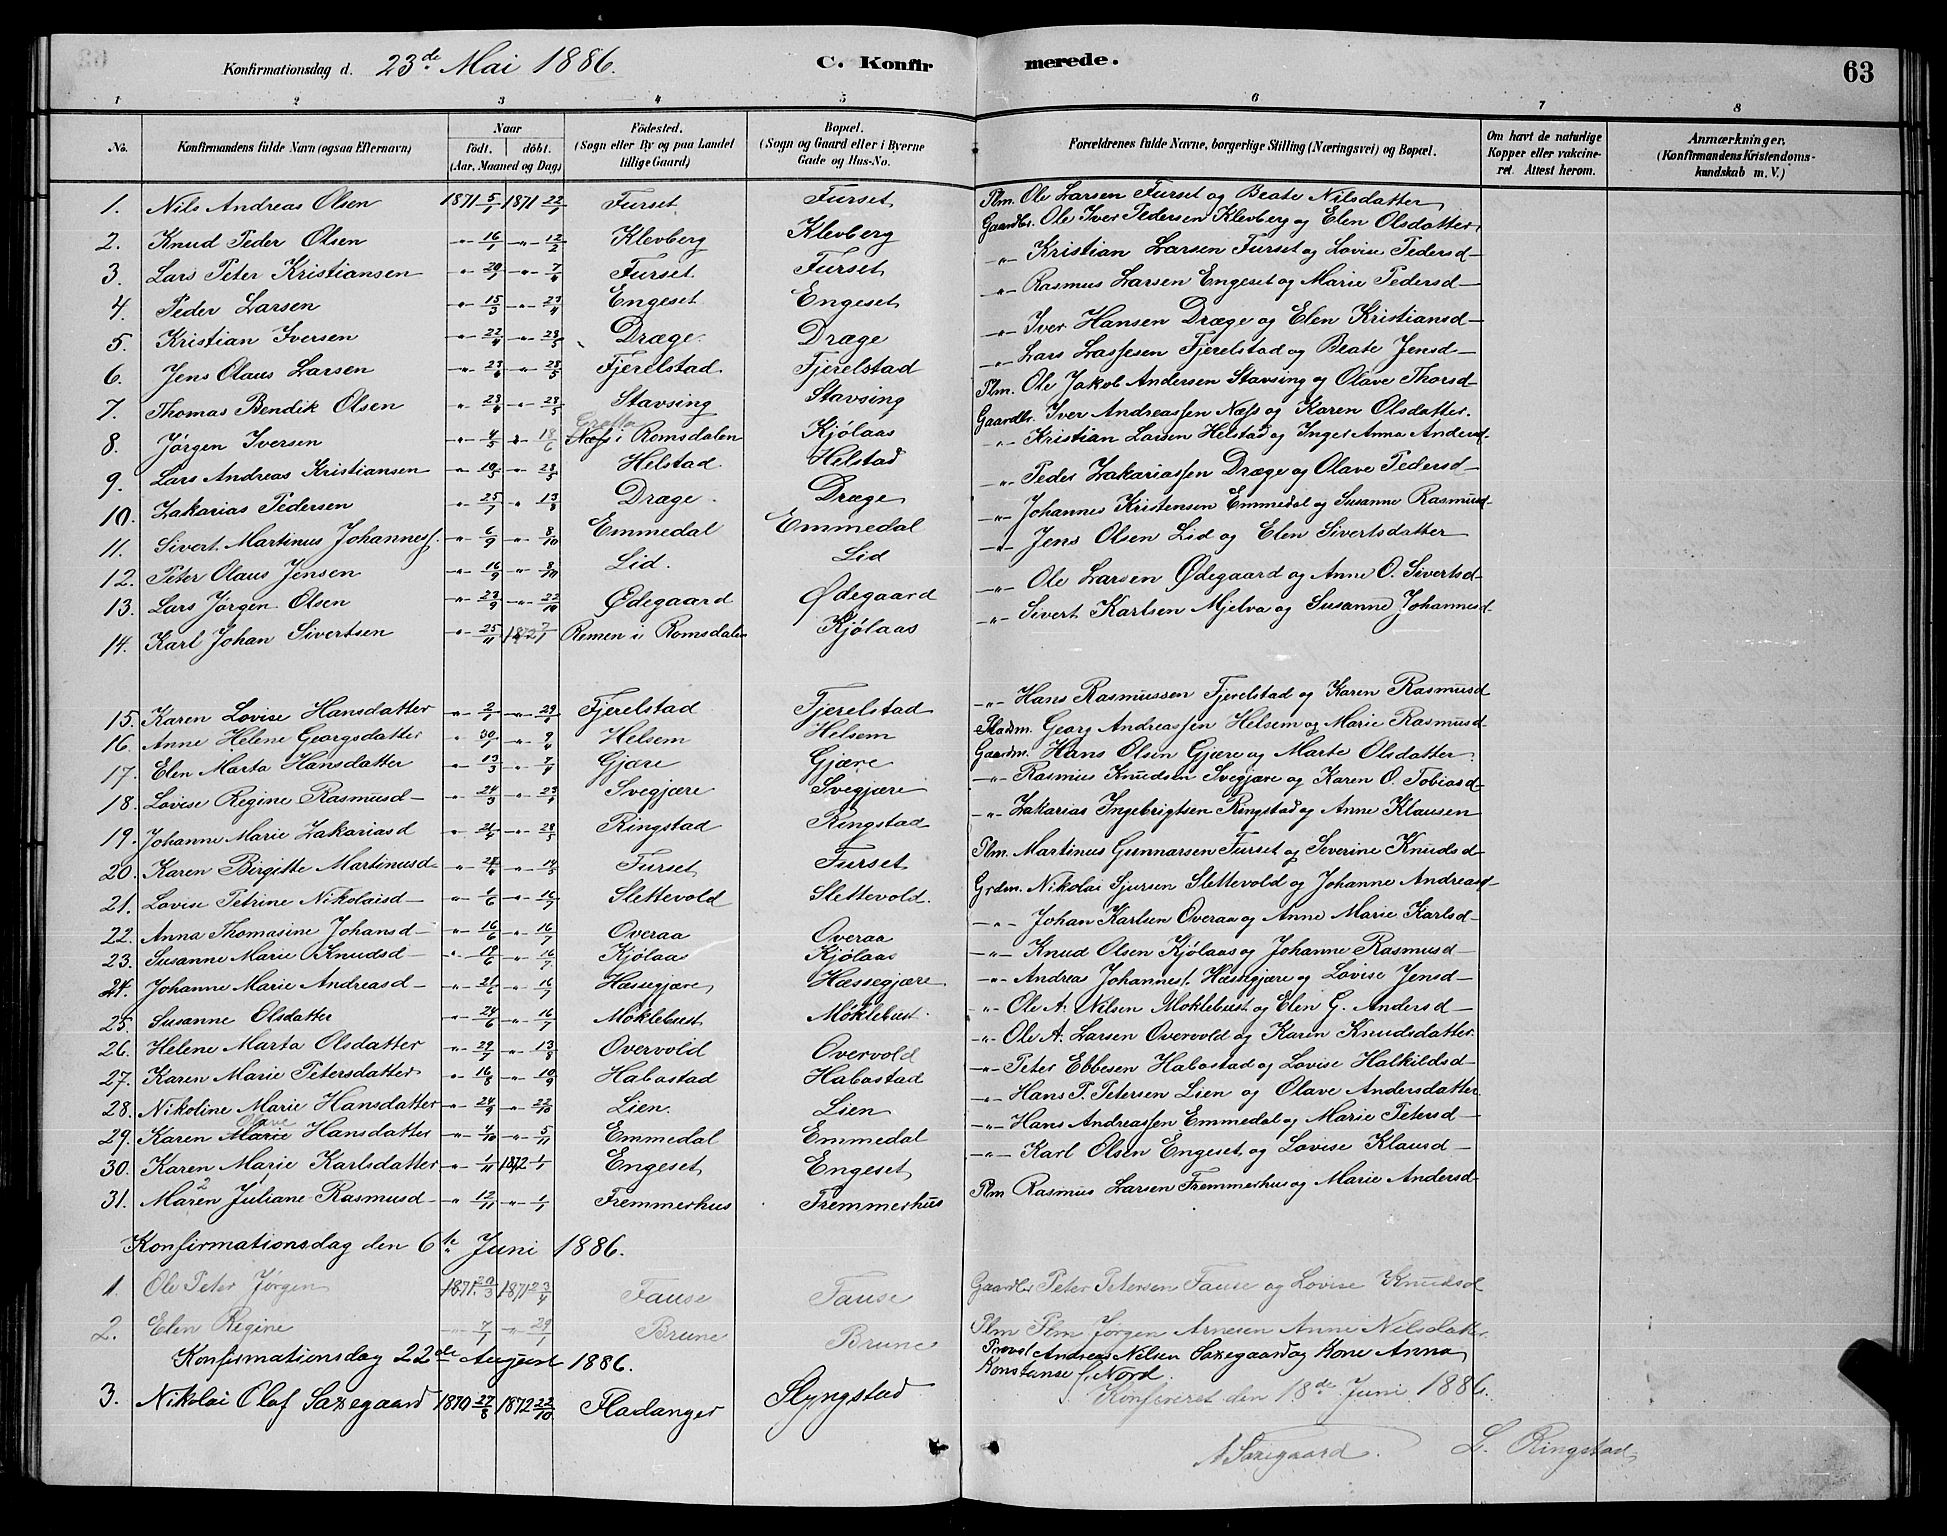 Konfirmationsdag d. 23de Mai 1886. C. Konfirmerede. 63
1 2 3 4 5 6 7 8
No. Konfirmandens fulde Navn (ogsaa Efternavn) Naar födt. döbt. (Aar, Maaned og Dag) Födested. (Sogn eller By og paa Landet tillige Gaard) Bopæl. (Sogn og Gaard eller i Byerne Gade og Hus-No. Forældrenes fulde Navne, borgerlige Stilling (Næringsvei) og Bopæl. Om havt de naturlige Kopper eller vakcineret. Attest herom. Anmærkninger. (Konfirmandens Kristendomskundskab m. V.)
1. Nils Andreas Olsen 1871 5/1 1871 22/1 Furset Furset Plm. Ole Larsen Furset og Beate Nilsdatter
2. Knud Peder Olsen " 16/1 " 12/2 Klevberg Klevberg Gaardbr. Ole Iver Pedersen Klevberg og Elen Olsdatter
3. Lars Peter Kristiansen " 20/1 " Furset Furset " Kristian Larsen Furset og Lovise Pedersd
4. Peder Larsen " 15/3 " 23/4 Engeset Engeset " Rasmus Larsen Engeset og Marie Pedersd
5. Kristian Iversen " 22/4 " 28/5 Dræge Dræge " Iver Hansen Dræge og Elen Kristiansd
6. Jens Olaus Larsen " " 28/5 Fjerelstad Fjerelstad " Lars Lassesen Fjerelstad og Beate Jensd
7. Thomas Bendik Olsen " " 28/5 Stavsing Stavsing Plm. Ole Jakob Andersen Stavsing og Olave Thorsd
8. Jørgen Iversen " 4/5 " 18/6 Grytta Næss i Romsdalen Kjølaas Gaardbr. Iver Andreassen Næss og Karen Olsdatter.
9. Lars Andreas Kristiansen " 10/5 " 28/5 Helstad Helstad " Kristian Larsen Helstad og Inger Anna Andersd
10. Zakarias Pedersen " 25/7 " 13/8 Dræge Dræge " Peder Zakariassen Dræge og Olave Pedersd
11. Sivert Martinus Johanness. " 6/9 " 8/10 Emmedal Emmedal " Johannes Kristensen Emmedal og Susanne Rasmusd
12. Peter Olaus Jensen " 16/9 " 8/10 Lid. Lid " Jens Olsen Lid og Elen Sivertsdatter
13. Lars Jørgen Olsen " 23/9 " 22/10 Ødegaard Ødegaard " Ole Larsen Ødegaard og Anne O. Sivertsd
14. Karl Johan Sivertsen " 25/11 1872 7/1 Remen i Romsdalen Kjølaas " Sivert Karlsen Mjelva og Susanne Johannesd
15. Karen Lovise Hansdatter " " Fjerelstad Fjerelstad " Hans Rasmussen Fjerelstad og Karen Rasmusd
16. Anne Helene Georgsdatter " 30/1 " 9/4 Helsem Helsem Georg Andreassen Helsem og Marie Rasmusd
17. Elen Marta Hansdatter " 13/3 " Gjære Gjære Gaardm. Hans Olsen Gjære og Marte Olsdatter
18. Lovise Regine Rasmusd " 24/3 " Svegjære Svegjære " Rasmus Knudsen Svegjære og Karen O. Tobiasd
19. Johanne Marie Zakariasd " 21/4 " 28/5 Ringstad Ringstad " Zakarias Ingebrigtsen Ringstad og Anne Klausen
20. Karen Birgitte Martinusd " " 14/5 Furset Furset Plm. Martinus Gunnarsen Furset og Severine Knudsd
21. Lovise Petrine Nikolaisd " 1/6 " 16/7 Slettevold Slettevold. Grdm. Nikolai Sjursen Slettevold og Johanne Andreasd
22. Anna Thomasine Johansd " 16/6 " 16/7 Overaa Overaa " Johan Karlsen Overaa og Anne Marie Karlsd
23. Susanne Marie Knudsd " " 16/7 Kjølaas Kjølaas " Knud Olsen Kjølaas og Johanne Rasmusd
24. Johanne Marie Andreasd " 21/6 " 16/7 Hæssegjære Hæssegjære " Andreas Johanness. Hæssegjære og Lovise Jensd
25. Susanne Olsdatter " 24/6 " 16/7 Moklebust Moklebust " Ole A. Nilsen Moklebust og Elen G. Andersd
26. Helene Marta Olsdatter " 29/7 " 13/8 Overvold Overvold " Ole A. Larsen Overvold og Karen Knudsdatter.
27. Karen Marie Petersdatter " 16/8 " 10/9 Habostad Habostad " Peter Ebbesen Habostad og Lovise Halkildsd
28. Nikoline Marie Hansdatter " 24/9 " 22/10 Lien Lien " Hans P. Petersen Lien og Olave Andersdatter
29. Karen Marie Olave Hansdatter " 4/10 " 5/11 Emmedal Emmedal " Hans Andreassen Emmedal og Marie Petersd
30. Karen Marie Karlsdatter " 1/11 1872 1/1 Engeset Engeset " Karl Olsen Engeset og Lovise Klausd
31. Maren Juliane Rasmusd " 12/11 " 1/1 Fremmerhus Fremmerhus Plm Rasmus Larsen Fremmerhus og Marie Andersd
Konfirmationsdag den 6te Juni 1886.
1. Ole Peter Jørgen 1871 20/3 1871 23/4 Fause Fause Gaardbr Peter Petersen Fause og Lovise Knudsd
2. Elen Regine " 7/1 " 29/1 Brune Brune Plm Plm Jørgen Arnesen Anne Nilsdatter
Konfirmationsdag 22de August 1886.
3. Nikolai Olaf Saxegaard 1870 27/8 1872 22/10 Fladanger Slyngstad Provst Andreas Nilsen Saxegaard og Kone Anna
Konstanse f. Nord
Konfereret den 18de Juni 1886.
A Saxegaard. L. Ringstad